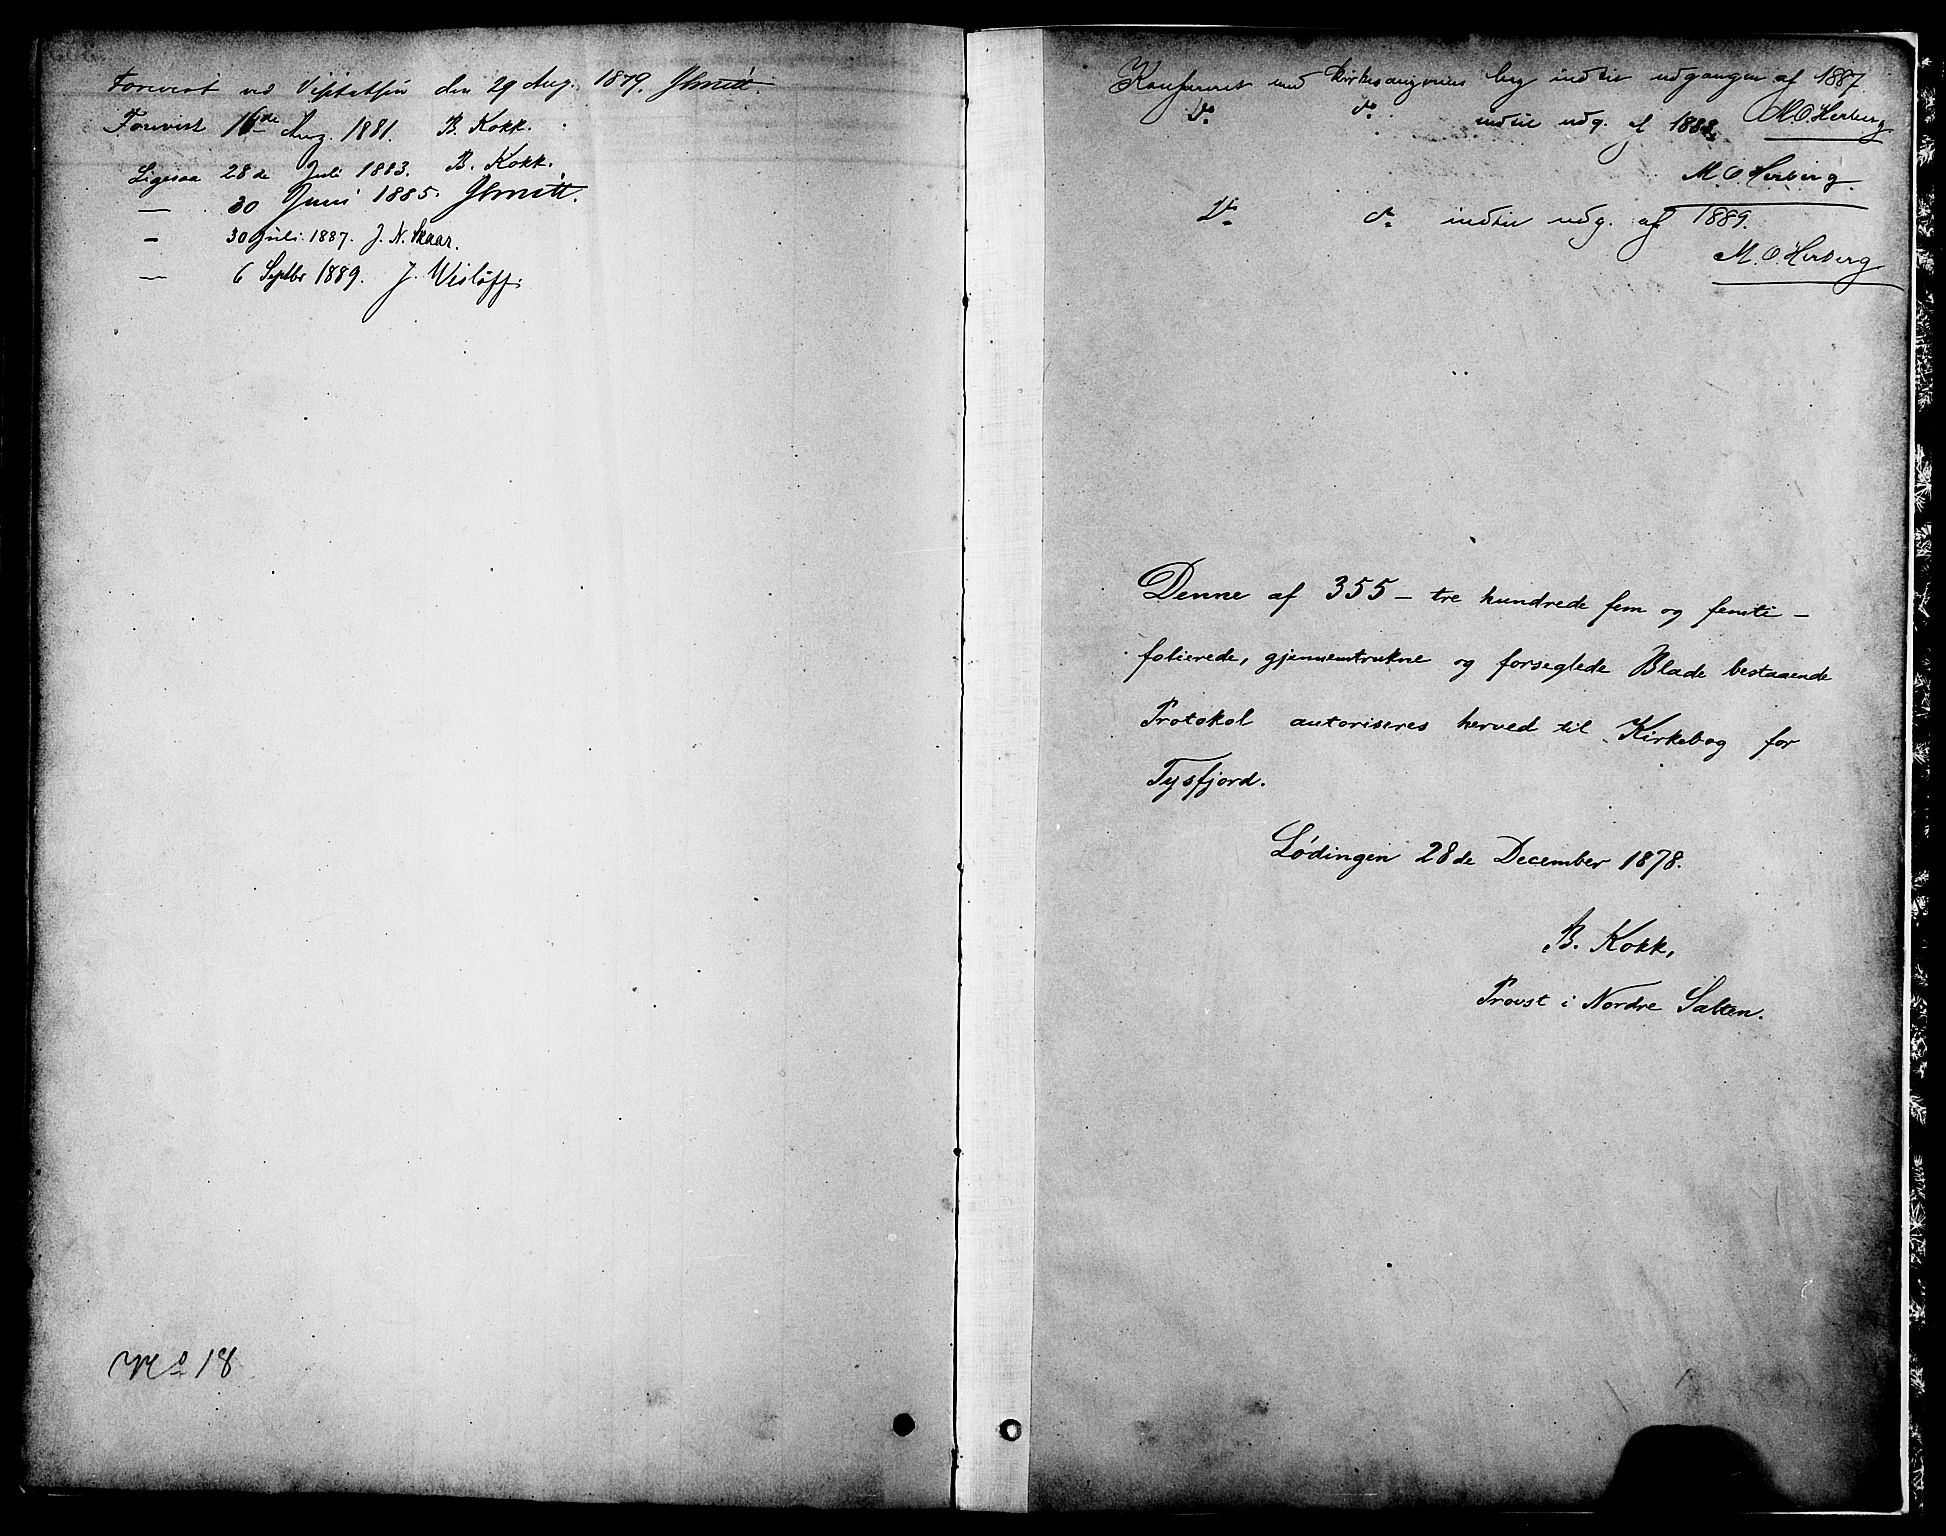 Forevist ved Visitatsen den 29 Aug. 1879. JSmitt.
Forevist 16de Aug. 1881. B. Kokk.
Ligesaa 28de Juli 1883. B. Kokk.
— 30 Juni 1885. JSmitt.
— 30 Juli 1887. J. N. Skaar.
— 6 Septbr 1889. J. Wisløff.
No 18
Konfereret med Kirkesangerens bog indtil udgangen af 1887.
Do do indtil udg. af 1888. M.O.Herberg
M.O.Herberg.
Do do indtil udg. af 1889.
M.O.Herberg
Denne af 355 – tre hundrede fem og femti –
folierede, gjennemtrukne og forseglede Blade bestaaende
Protokol autoriseres herved til Kirkebog for
Tysfjord.
Lødingen 28de December 1878.
B. Kokk,
Provst i Nordre Salten.